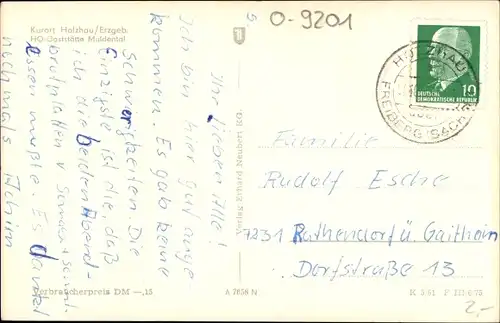 Kurort Holzhau/Erzgeb.
HO-Gaststätte Muldental
5
O-9201
Ihr lieben Alle!
Ich bin hier gut ange
kommen. Es gab keine
Schwierigkeiten. Die
Einzigste ist die, daß
ich die beiden Abend-
brotplatten v.
essen mußte. Es dankt
nochmals Achim
Verlag Erhard Neubert KG,
HOLZHAU
FREIBERG (SACHS)
DEUTSCHE
DEMOKRATISCHE REPUBLIK
10
Familie
Rudolf Esche
7231 Rathendorf ü. Gaithain
Dorfstraße 13
Verbraucherpreis DM —,15
A 7858 N
2,-